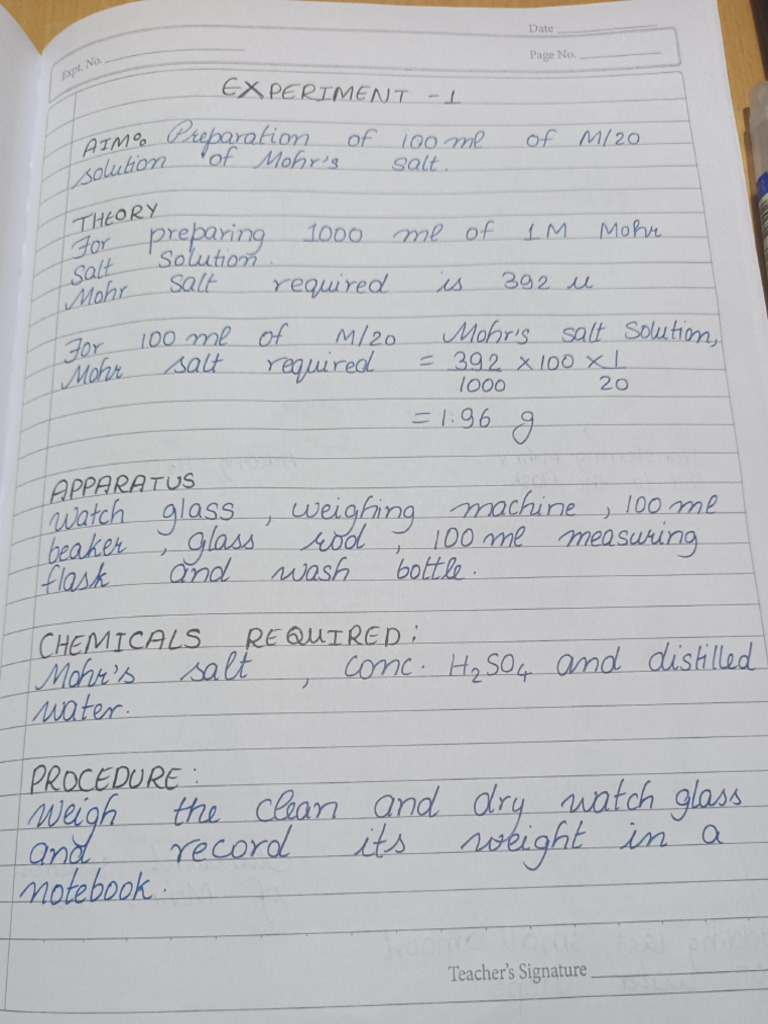 Date
Expt. No.
Page No.
EXPERIMENT - 1
AIM: Preparation of 100 ml of M/20
solution of Mohr's salt.
THEORY
For preparing 1000 ml of 1M Mohr
Salt Solution.
Mohr Salt required is 392 u
For 100 ml of M/20 Mohr's salt Solution,
Mohr salt required = 392 × 100 × 1
1000 20
= 1.96 g
APPARATUS
Watch glass, weighing machine, 100 ml
beaker, glass rod, 100 ml measuring
flask and wash bottle.
CHEMICALS REQUIRED:
Mohr's salt, conc. H₂SO₄ and distilled
water.
PROCEDURE:
Weigh the clean and dry watch glass
and record its weight in a
notebook.
Teacher's Signature